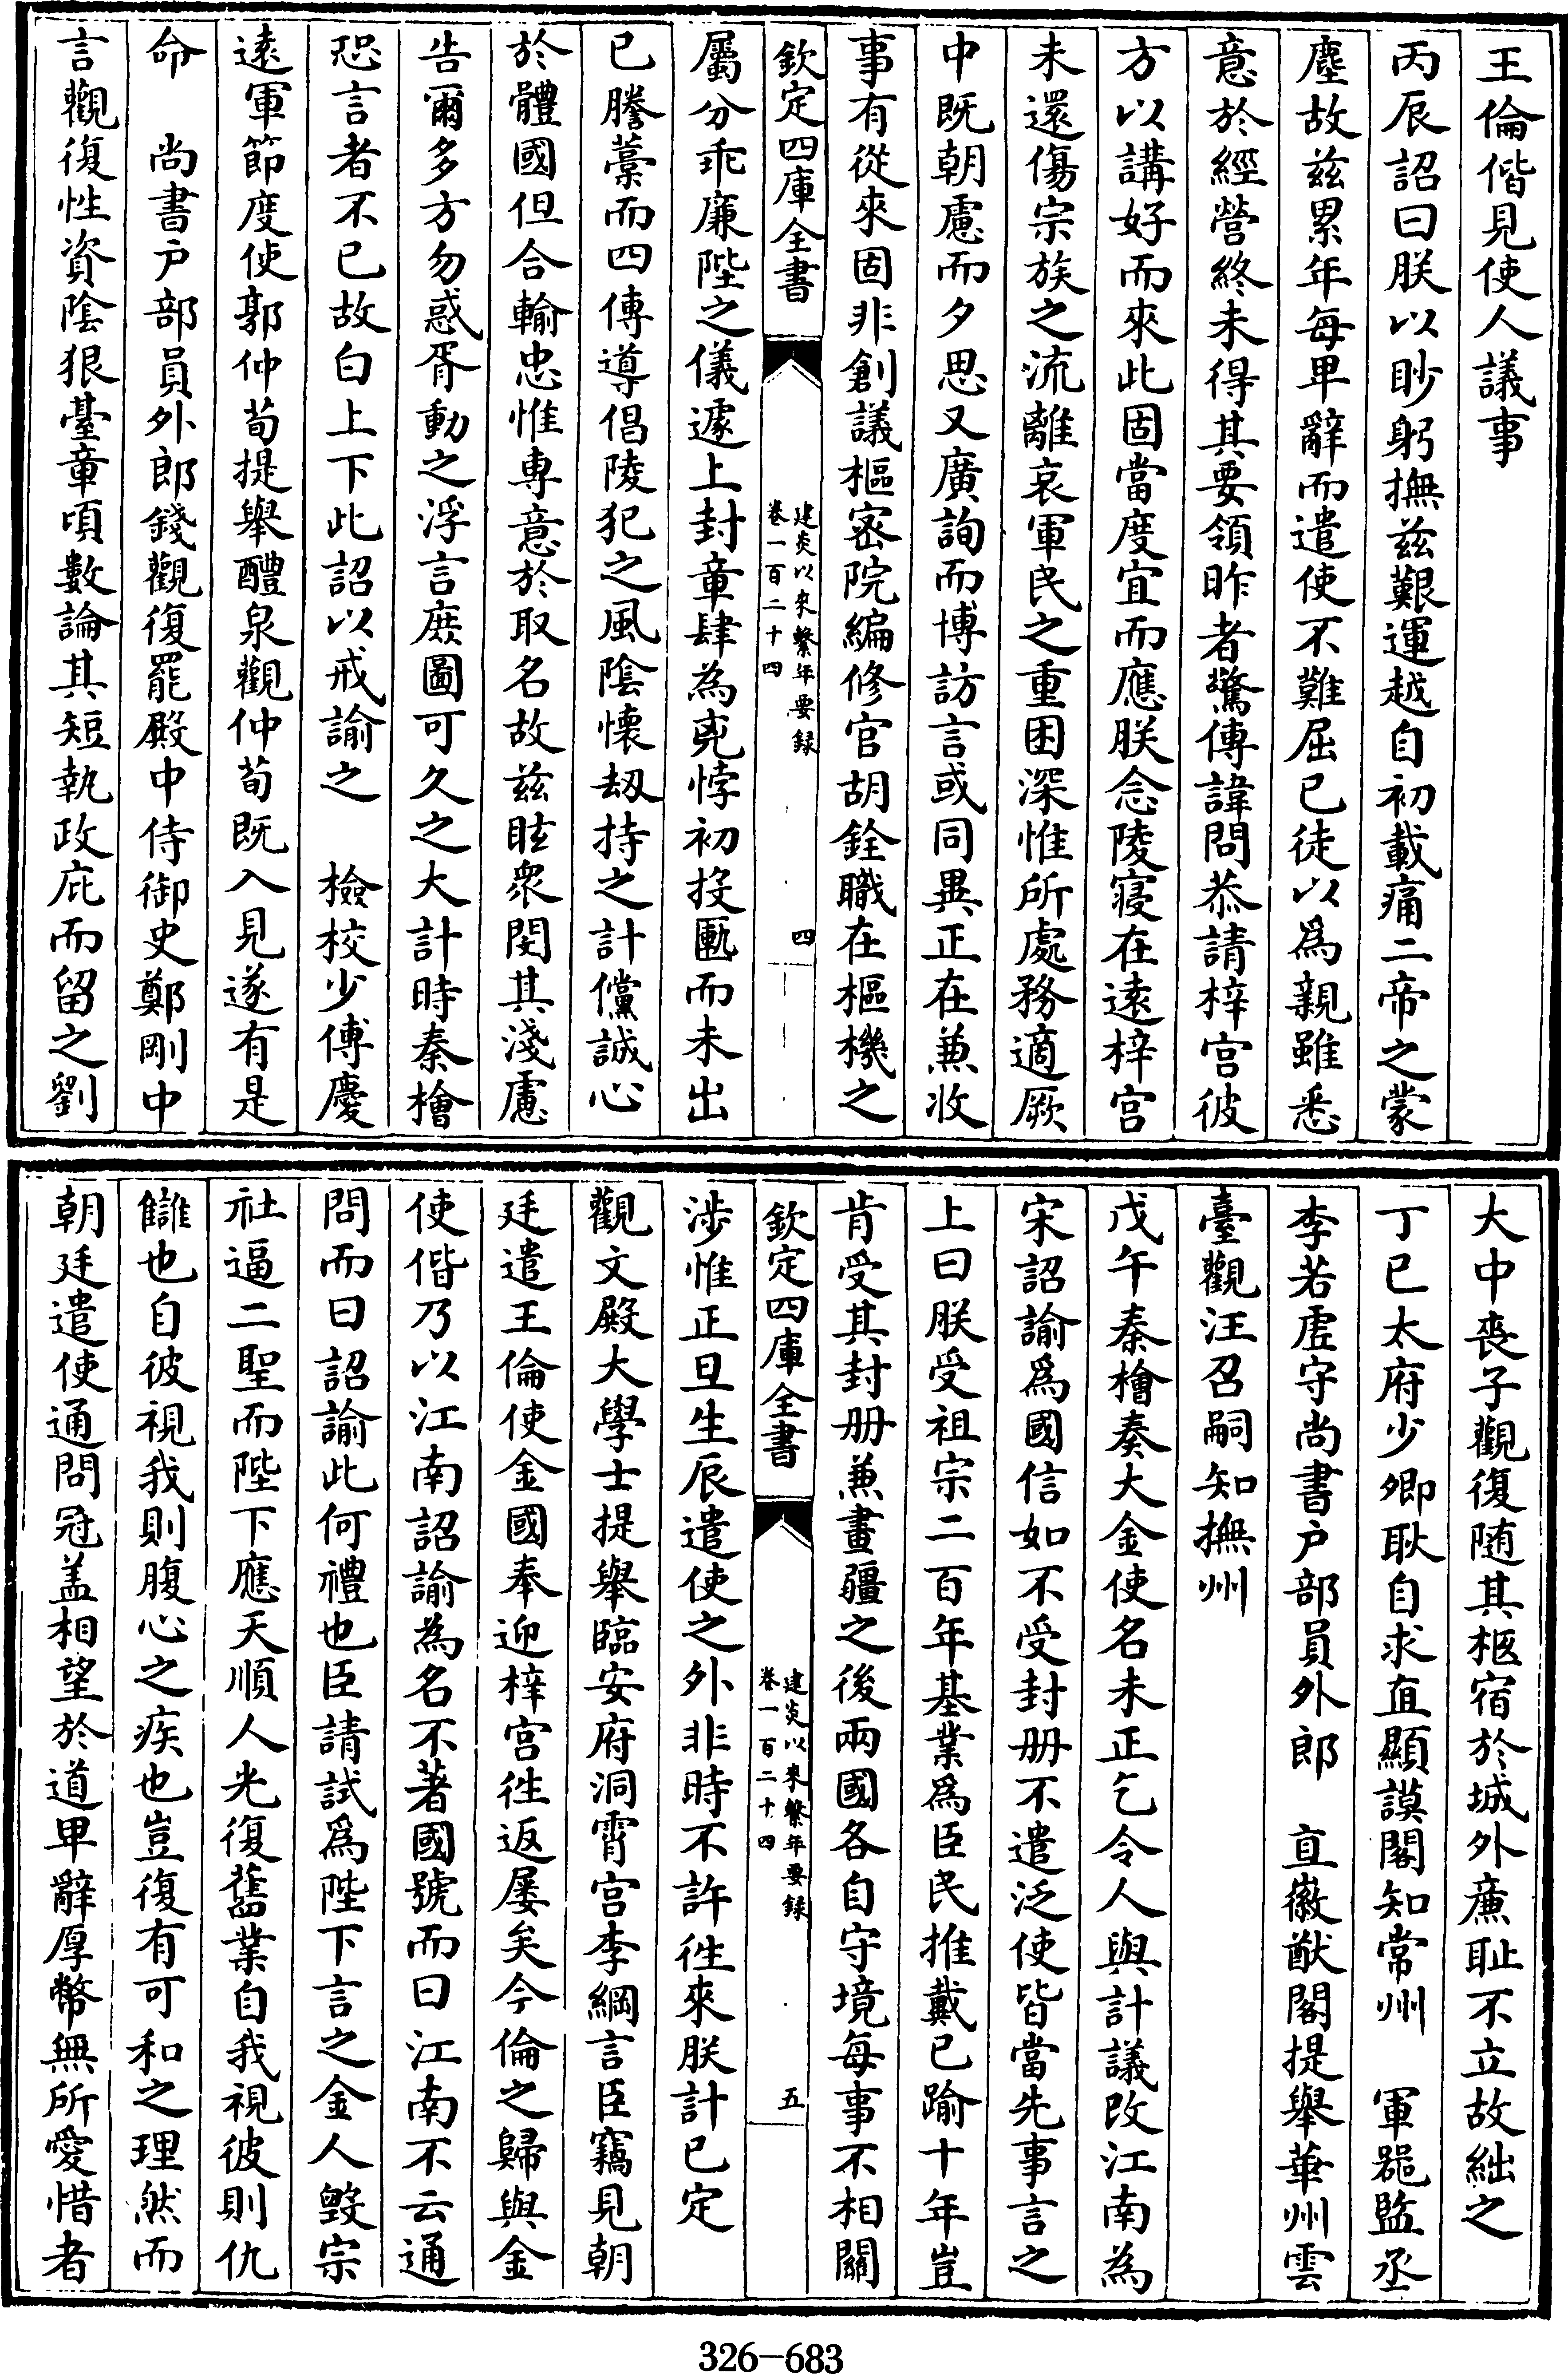 王倫偕見使人議事
丙辰詔曰朕以眇躬撫兹艱運越自初載痛二帝之蒙
塵故兹累年每卑辭而遣使不難屈已徒以爲親雖悉
意於經營終未得其要領昨者驚傳諱問恭請梓宫彼
方以講好而來此固當度宜而應朕念陵寝在逺梓宫
未還傷宗族之流離哀軍民之重困深惟所處務適厥
中既朝慮而夕思又廣詢而博訪言或同異正在兼收
事有從來固非創議樞密院編修官胡銓職在樞機之
欽定四庫全書
建炎以來繫年要録
卷一百二十四
四
屬分乖廉陛之儀遽上封章肆為兇悖初投匭而未出
已謄藁而四傳導倡陵犯之風陰懐刼持之計儻誠心
於體國但合輸忠惟専意於取名故兹眩衆閔其淺慮
告爾多方勿惑胥動之浮言庶圖可久之大計時秦檜
恐言者不已故白上下此詔以戒諭之　檢校少傅慶
逺軍節度使郭仲荀提舉醴泉觀仲荀既入見遂有是
命　尚書户部員外郎錢觀復罷殿中侍御史鄭剛中
言觀復性資陰狠臺章頃數論其短執政庇而留之劉
大中喪子觀復随其柩宿於城外亷耻不立故絀之
丁已太府少卿耿自求直顯謨閣知常州　軍器監丞
李若虚守尚書户部員外郎　直徽猷閣提舉華州雲
臺觀汪召嗣知撫州
戊午秦檜奏大金使名未正乞令人與計議改江南為
宋詔諭爲國信如不受封册不遣泛使皆當先事言之
上曰朕受祖宗二百年基業爲臣民推戴已踰十年豈
肯受其封册兼畫疆之後兩國各自守境每事不相關
欽定四庫全書
建炎以來繫年要録
卷一百二十四
五
涉惟正旦生辰遣使之外非時不許徃來朕計已定
觀文殿大學士提舉臨安府洞霄宫李綱言臣竊見朝
廷遣王倫使金國奉迎梓宫徃返屢矣今倫之歸與金
使偕乃以江南詔諭為名不著國號而曰江南不云通
問而曰詔諭此何禮也臣請試爲陛下言之金人毁宗
社逼二聖而陛下應天順人光復舊業自我視彼則仇
讎也自彼視我則腹心之疾也豈復有可和之理然而
朝廷遣使通問冠盖相望於道卑辭厚幣無所愛惜者
326—683